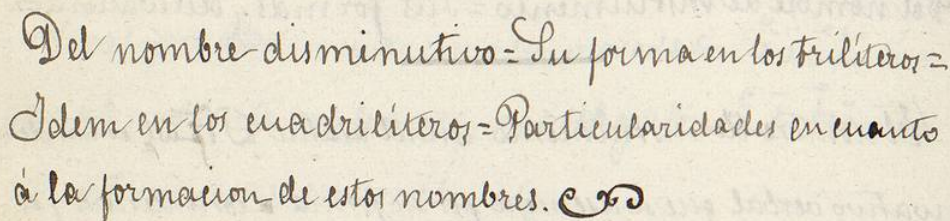 Del nombre disminutivo = Su forma en los trilíteros =
Idem en los cuadrilíteros = Particularidades en cuanto
á la formacion de estos nombres.